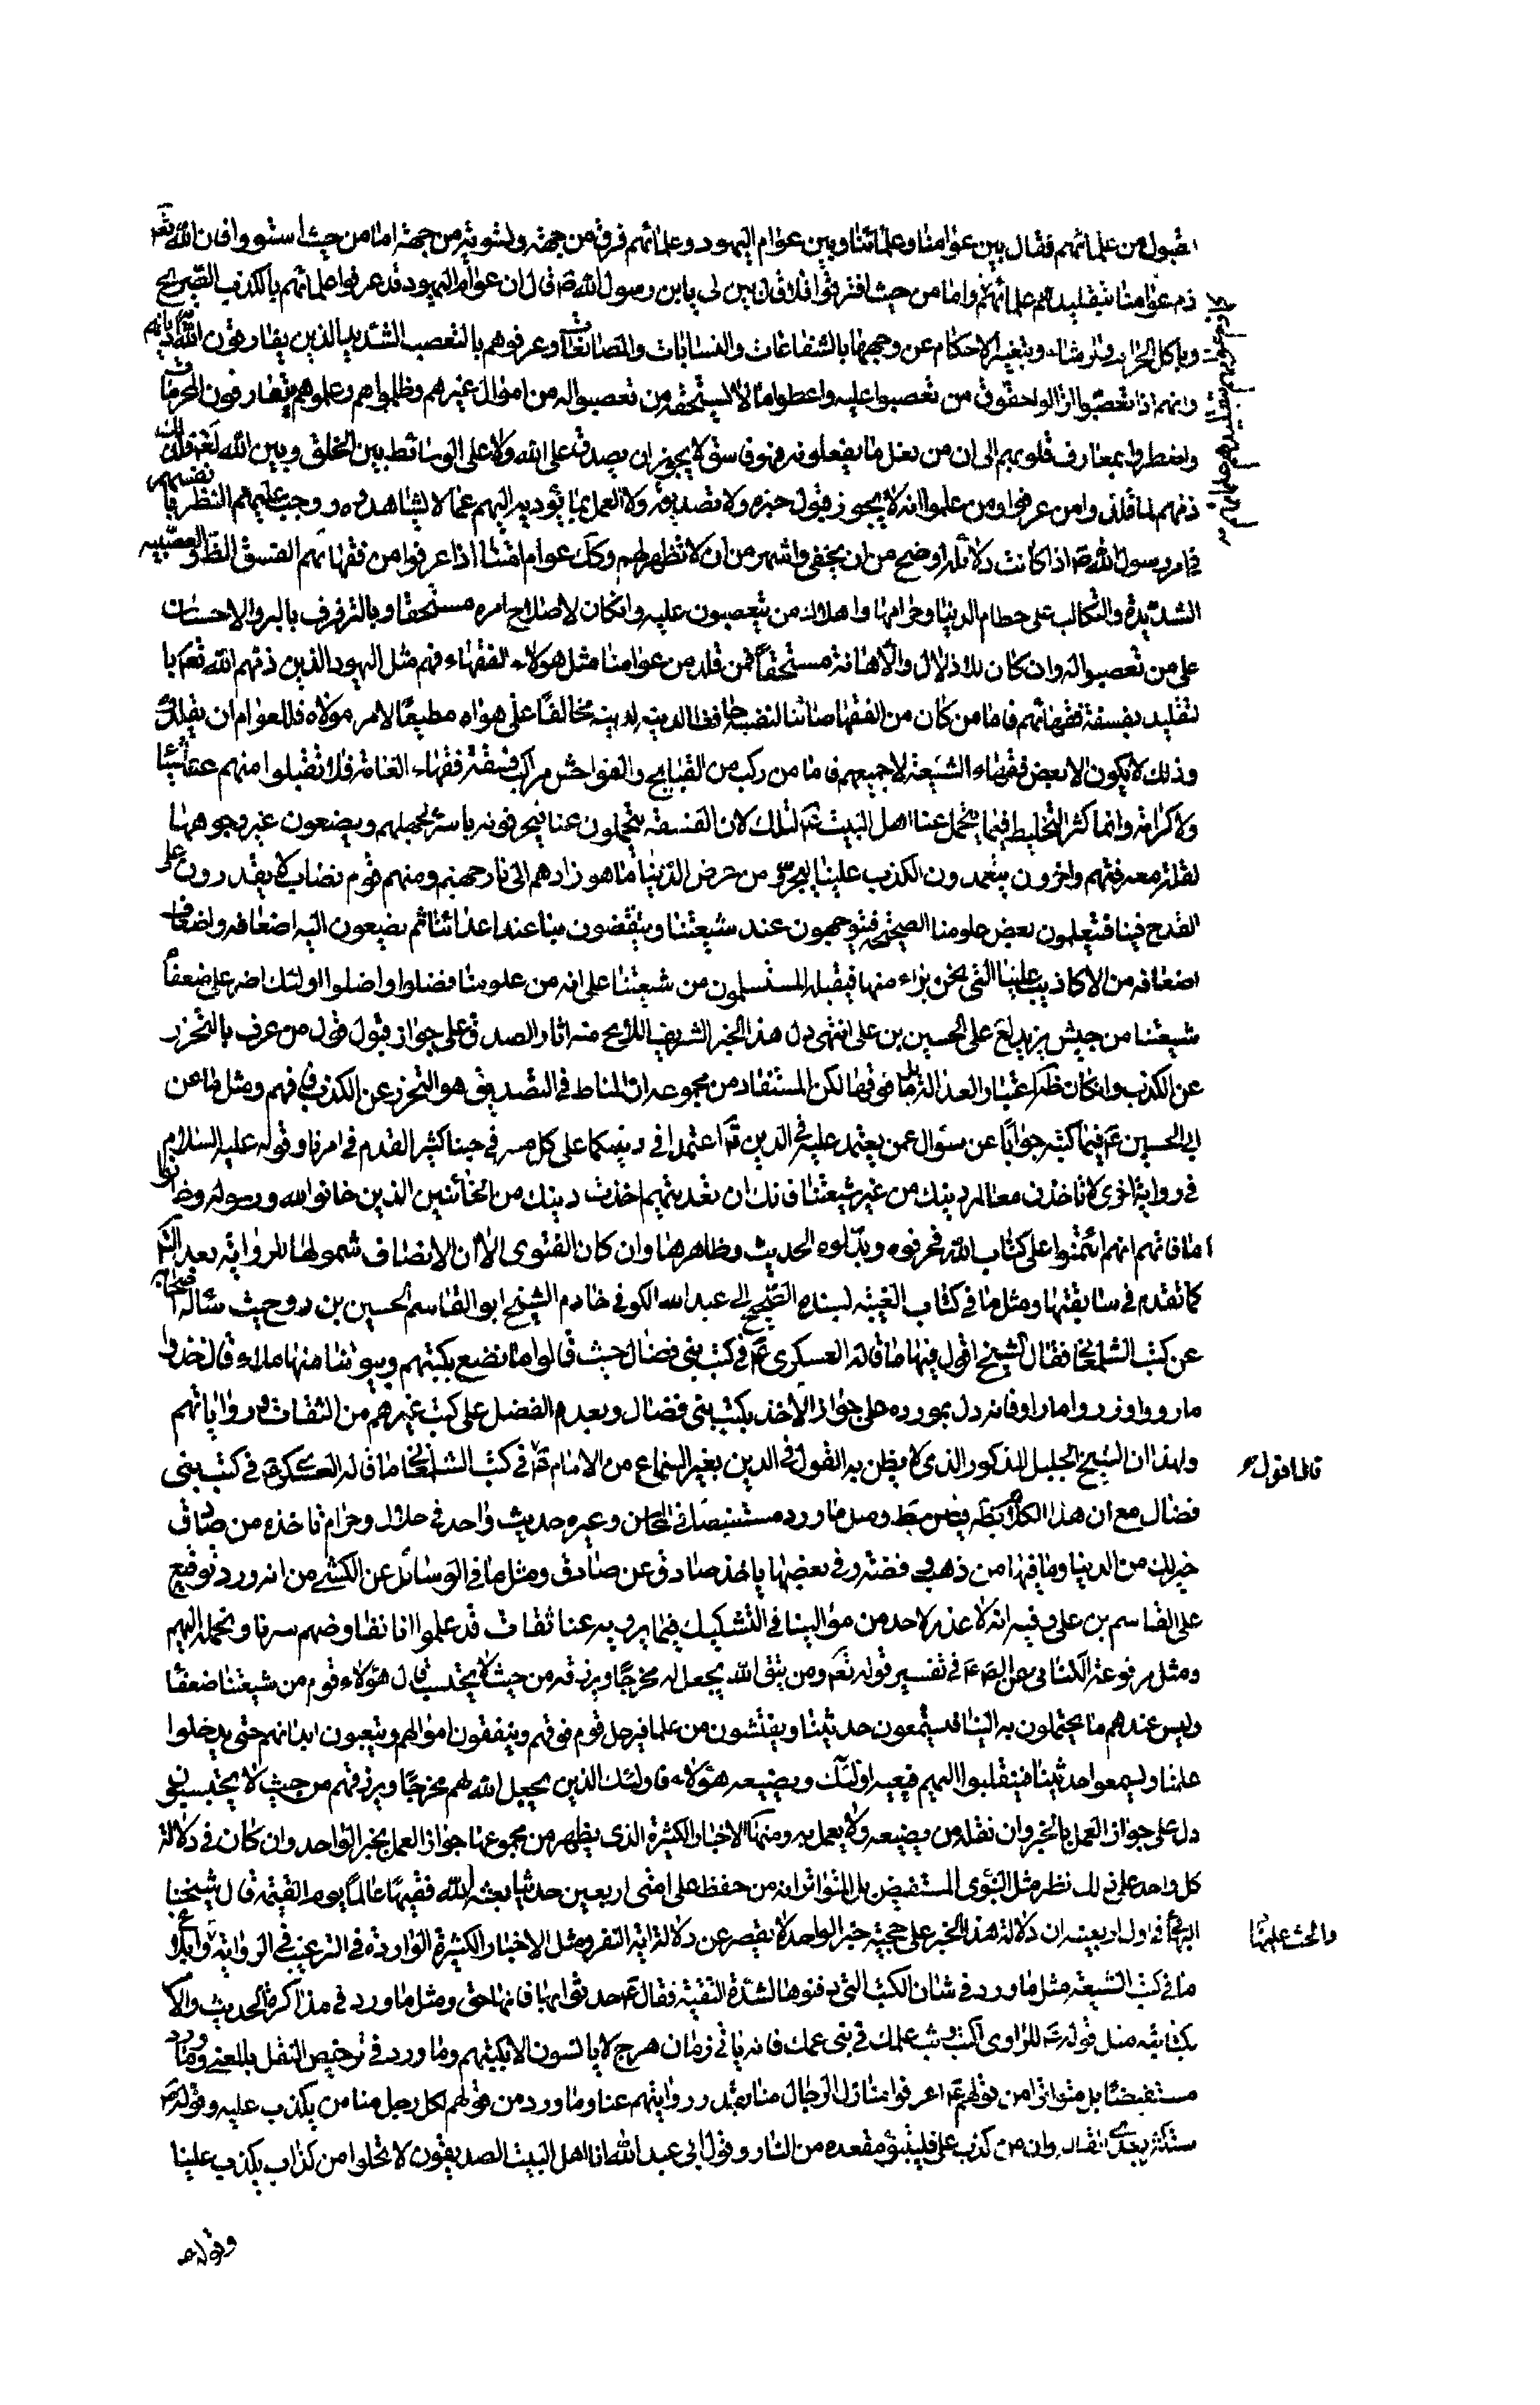 القبول من علمائهم فقال بين عوامنا وعلمائنا وبين عوام اليهود وعلمائهم فرق من جهة وتسوية من جهة اما من حيث استووا فان الله تعا
ذم عوامنا بتقليدهم علمائهم واما من حيث افترقوا فلا قال بين لى يا بن رسول الله ص قال ان عوام اليهود قد عرفوا علمائهم بالكذب الصريح
وباكل الحرام والرشاء وبتغيير الاحكام عن وجهها بالشفاعات والنسابات والمصانعات وعرفوهم بالتعصب الشديد الذين يفارقون اديانهم
وانهم اذا تعصبوا ازالوا حقوق من تعصبوا عليه واعطوا ما لا يستحقه من تعصبوا له من اموال غيرهم وظلموهم وعلموهم يتعارفون المحرمات
واضطروا بمعارف قلوبهم الى ان من يفعل ما يفعلونه فهو فاسق لا يجوز ان يصدق على الله ولا على الوسائط بين الخلق وبين الله تعا فلذلك
ذمهم لما قلدوا من عرفوا ومن علموا انه لا يجوز قبول خبره ولا تصديقه ولا العمل بما يؤديه اليهم عمن لا يشاهدوه ووجب عليهم النظر بانفسهم
فى امر رسول الله ص اذا كانت دلائله اوضح من ان يخفى واشهر من ان لا تظهر لهم وكك عوام امتنا اذا عرفوا من فقهائهم الفسق الظ والعصبيه
الشديدة والتكالب على حطام الدنيا وحرامها واهلاك من يتعصبون عليه وان كان لاصلاح امره مستحقا وبالترفرف بالبر والاحسان
على من تعصبوا له وان كان للاذلال والاهانة مستحقاً فمن قلد من عوامنا مثل هؤلاء الفقهاء فهم مثل اليهود الذين ذمهم الله تعا با
لتقليد بفسقة فقهائهم فاما من كان من الفقهاء صائنا لنفسه حافظا لدينه مخالفًا على هواه مطيعًا لامر مولاه فللعوام ان يقلدوه
وذلك لا يكون الا بعض فقهاء الشيعة لا جميعهم فاما من ركب من القبايح والفواحش مراكب فسقة فقهاء العامة فلا تقبلوا منهم عنا شيئا
ولا كرامة وانما كثر التخليط فيما يتحمل عنا اهل البيت ع لتلك لان الفسقة يتحملون عنا فيحرفونه باسره لجهلهم ويضعون غير وجوهها
لقلة معرفتهم واخرون يتعمدون الكذب علينا ليجروا من عرض الدنيا ما هو زادهم الى نار جهنم ومنهم قوم نصاب لا يقدرون على
القدح فينا فيتعلمون بعض علومنا الصحيحة فيتوجهون عند شيعتنا وينتقصون بنا عند اعدائنا ثم يضيعون اليه اضعافه واضعاف
اضعافه من الاكاذيب علينا التى نحن براء منها فيقبله المستسلمون من شيعتنا على انه من علومنا فضلوا واضلوا اولئك اضر على ضعفاء
شيعتنا من جيش يزيد لع على الحسين بن على انتهى دل هذا الخبر الشريف اللايح منه اثار الصدق على جواز قبول قول من عرف بالتحرز
عن الكذب وان كان ظاهره اعتبار العدالة بل ما فوقها لكن المستفاد من مجموعه ان المناط فى التصديق هو التحرز عن الكذب فافهم ومثل ما عن
ابى الحسين ع فيما كتبه جوابًا عن سؤال عمن يعتمد عليه فى الدين قال اعتمدا فى دينكما على كل مسن فى حبنا كثير القدم فى امرنا وقوله عليه السلام
فى رواية اخرى لا تاخذن معالم دينك من غير شيعتنا فانك ان تعديتهم اخذت دينك من الخائنين الذين خانوا الله ورسوله وخانوا
اماناتهم انهم ائتمنوا على كتاب الله فحرفوه وبدلوه الحديث وظاهرهما وان كان الفتوى الا ان الانصاف شمولهما للرواية بعد التامل
كما تقدم فى سابقتهما ومثل ما فى كتاب الغيبة بسنده الصحيح الى عبد الله الكوفى خادم الشيخ ابو القاسم الحسين بن روح حيث سئاله اصحابه
عن كتب الشلمغانى فقال الشيخ اقول فيها ما قاله العسكرى ع فى كتب بنى فضال حيث قالوا ما نصنع بكتبهم وبيوتنا منها ملاء قال خذوا
ما رووا وذروا ما راوا فانه دل بمورده على جواز الاخذ بكتب بنى فضال وبعدم الفصل على كتب غيرهم من الثقات ورواياتهم
ولهذا ان الشيخ الجليل المذكور الذى لا يظن به القول فى الدين بغير السماع من الامام ع قال فى كتب الشلمغانى ما قاله العسكرى ع فى كتب بنى
قائلا اقول
فضال مع ان هذا الكلام بظاهره ومثل ما ورد مستفيضا فى المحاسن وغيره حديث واحد فى حلال وحرام تاخذه من صادق
خير لك من الدنيا وما فيها من ذهب وفضة وفى بعضها ياخذ صادق عن صادق ومثل ما فى الوسائل عن الكشى من انه ورد توقيع
على القاسم بن على وفيه انه لا عذر لاحد من موالينا فى التشكيك فيما يرويه عنا ثقاتنا قد علموا انا نفاوضهم سرنا ونحمله اليهم
ومثل مرفوعة الكنانى عن الص ع فى تفسير قوله تعا ومن يتق الله يجعل له مخرجًا ويرزقه من حيث لا يحتسب قال هؤلاء قوم من شيعتنا ضعفاء
وليس عندهم ما يتحملون به الينا فيستمعون حديثنا ويفتشون من علمنا فيرحل قوم فوقهم وينفقون اموالهم ويتعبون ابدانهم حتى يدخلوا
علينا ويسمعوا حديثنا فينقلبوا اليهم فيعيه اولئك ويضيعه هؤلاء فاولئك الذين يجعل الله لهم مخرجًا ويرزقهم من حيث لا يحتسبون
دل على جواز العمل بالخبر وان نقله من يضيعه ولا يعمل به ومنها الاخبار الكثيرة الذى يظهر من مجموعها جواز العمل بخبر الواحد وان كان فى دلالة
كل واحد على ذلك نظر مثل النبوى المستفيض بل المتواتر انه من حفظ على امتى اربعين حديثا بعثه الله فقيهًا عالمًا يوم القيمة قال شيخنا
البهائى فى اول اربعينه ان دلالة هذا الخبر على حجية خبر الواحد لا يقصر عن دلالة اية النفر ومثل الاخبار الكثيرة الواردة فى الترغيب فى الرواية وابلاغ
والحث عليها
ما فى كتب الشيعة مثل ما ورد فى شان الكتب التى دفنوها لشدة التقية فقال ع حدثوا بها فانها حق ومثل ما ورد فى مذاكرة الحديث والامر
بكتابته مثل قوله ع للراوى اكتب وبث علمك فى بنى عمك فانه ياتى زمان هرج لا يانسون الا بكتبهم وما ورد فى ترخيص النقل بالمعنى وما ورد
مستفيضًا بل متواترا من قولهم ع اعرفوا منازل الرجال منا بقدر روايتهم عنا وما ورد من قولهم لكل رجل منا من يكذب عليه وقوله ص
ستكثر بعدى القالة وان من كذب على فليتبوء مقعده من النار وقول ابى عبد الله انا اهل البيت الصديقون لا نخلوا من كذاب يكذب علينا
وقوله